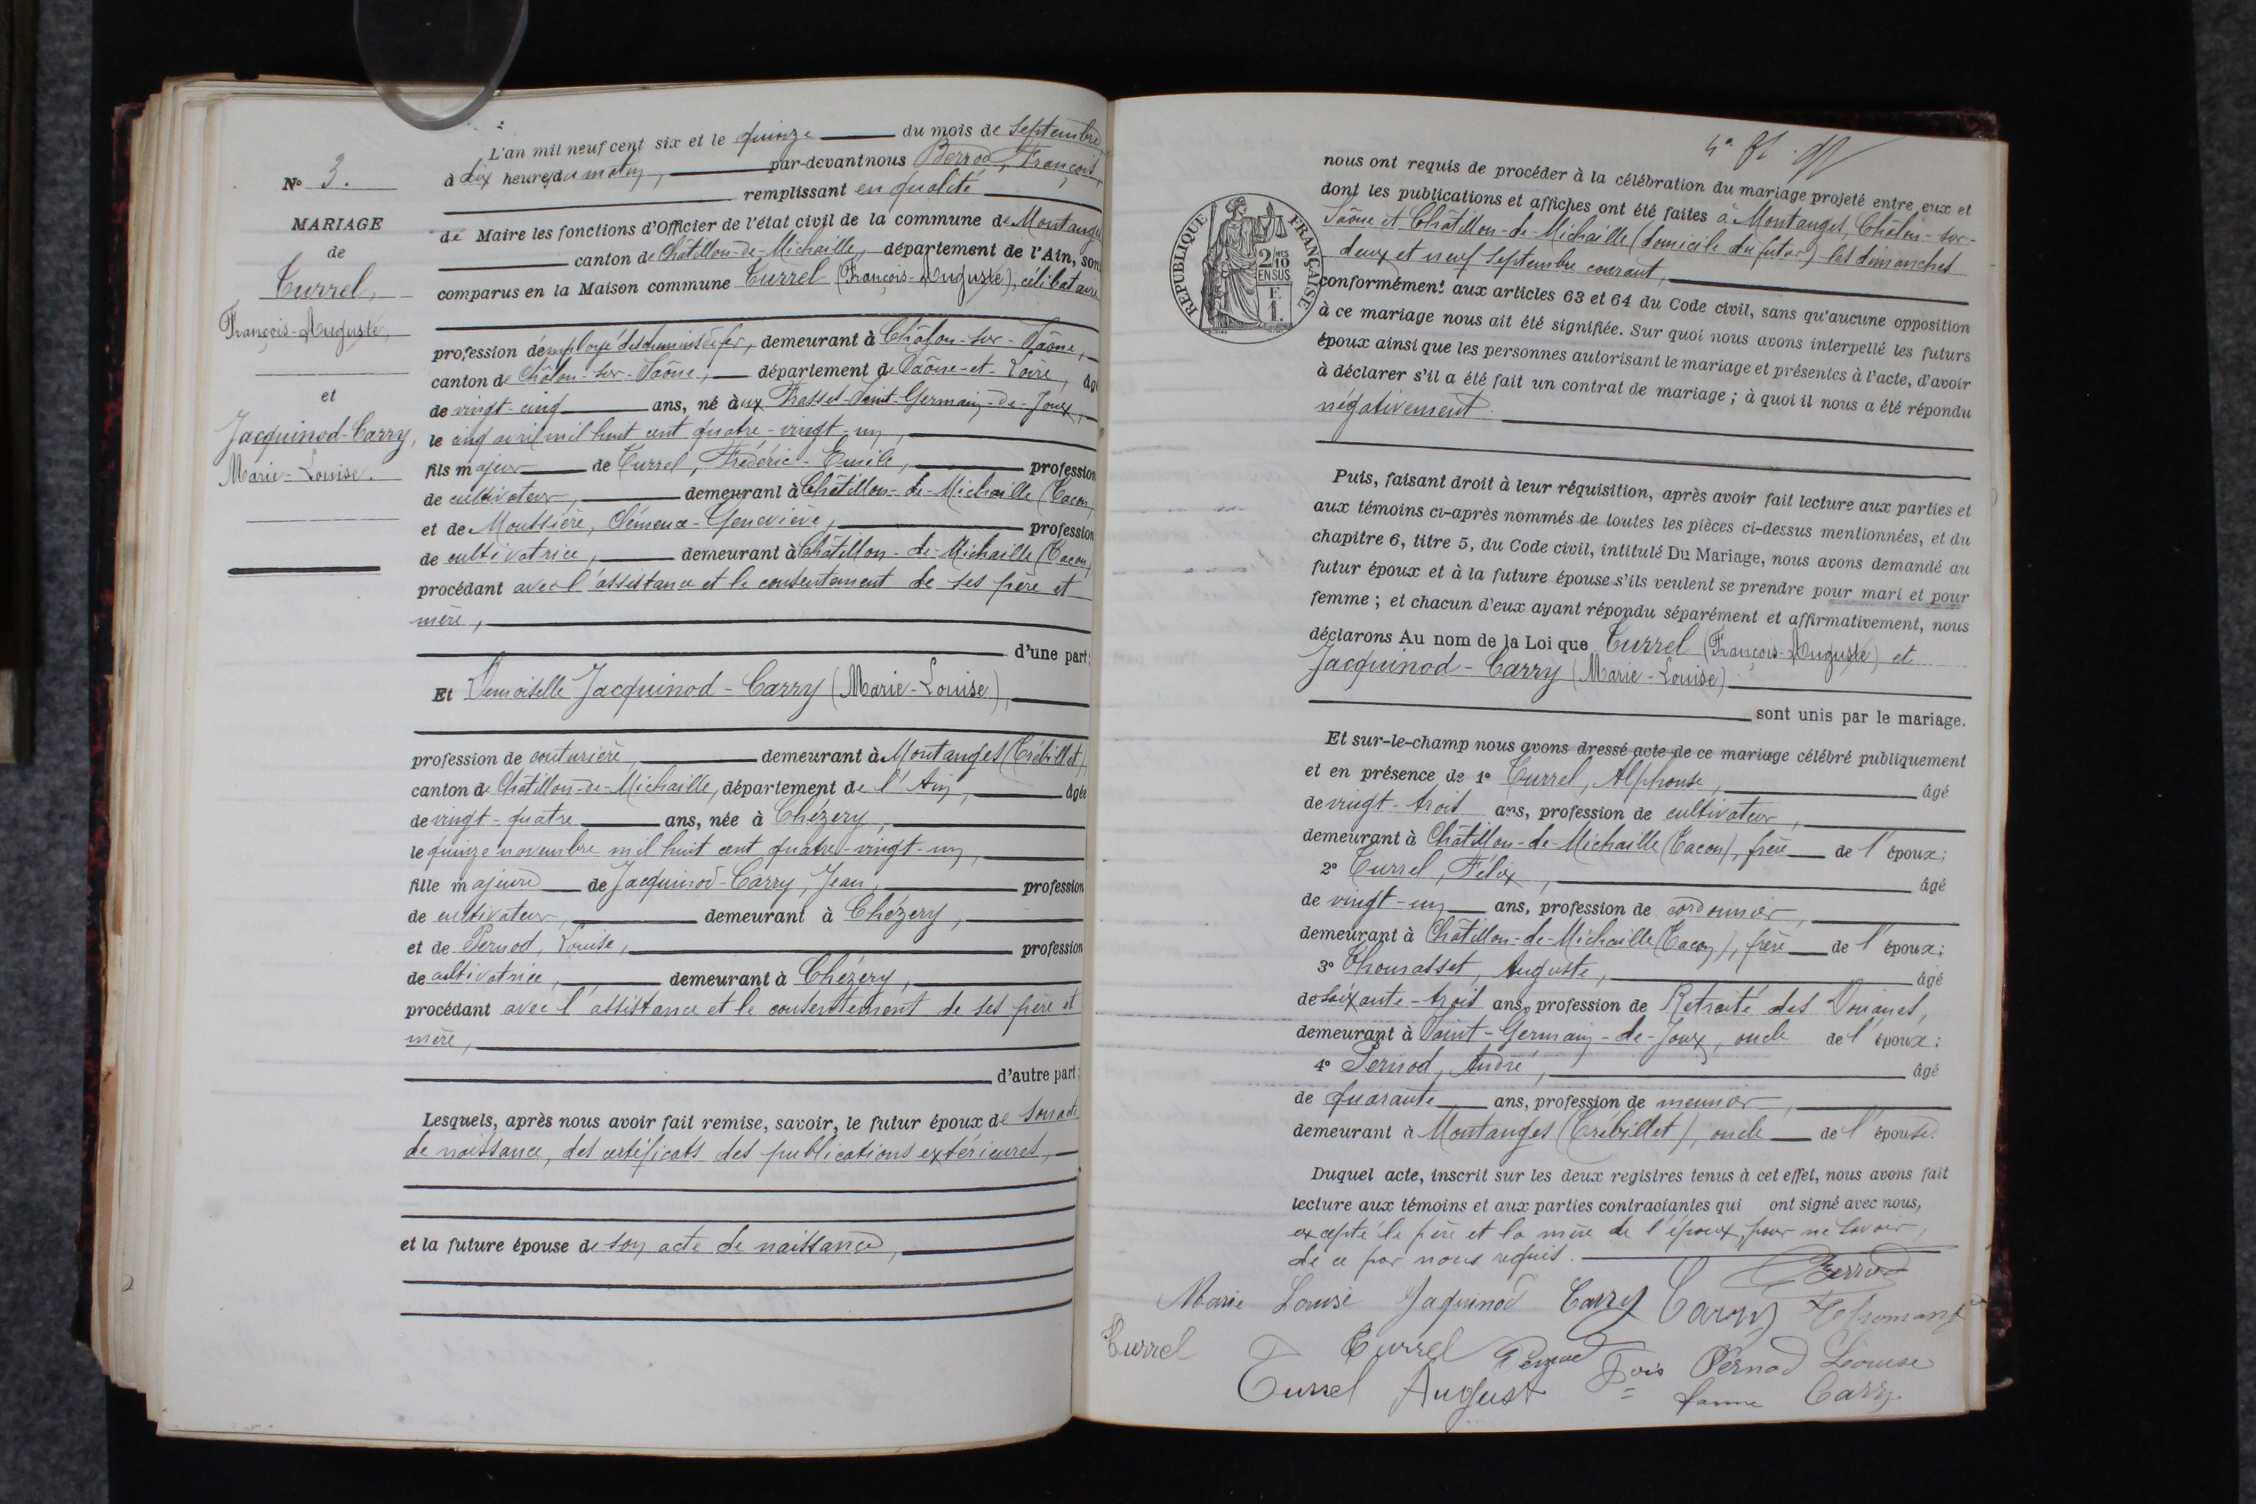 L'an mil neuf cent six et le quinze du mois de Septembre,
à dix heures du matin, par-devant nous Berrod, François,
remplissant en qualité
de Maire les fonctions d'Officier de l'état civil de la commune de Montanges
canton de Châtillon-de-Michaille, département de l'Ain, sont
comparus en la Maison commune Turrel (François-Auguste), célibataire
profession d'employé des chemins de fer, demeurant à Châlon-sur-Saône,
canton de Châlon-sur-Saône, département de Saône-et-Loire, âgé
de vingt-cinq ans, né aux Frasses-Saint-Germain-de-Joux,
le cinq avril mil huit cent quatre-vingt-un,
fils majeur de Turrel, Frédéric-Emile, profession
de cultivateur, demeurant à Châtillon-de-Michaille (Tacon)
et de Moussière, Clémence-Geneviève, profession
de cultivatrice, demeurant à Châtillon-de-Michaille (Tacon)
procédant avec l'assistance et le consentement de ses père et
mère,
d'une part;
Et Demoiselle Jacquinod-Carry (Marie-Louise),
profession de couturière, demeurant à Montanges (Trébillet),
canton de Châtillon-de-Michaille, département de l'Ain, âgée
de vingt-quatre ans, née à Chézery,
le quinze novembre mil huit cent quatre-vingt-un,
fille majeure de Jacquinod-Carry, Jean, profession
de cultivateur, demeurant à Chézery,
et de Pernod, Louise, profession
de cultivatrice, demeurant à Chézery,
procédant avec l'assistance et le consentement de ses père et
mère,
d'autre part;
Lesquels, après nous avoir fait remise, savoir, le futur époux de son acte
de naissance, des certificats des publications extérieures,
et la future épouse de son acte de naissance,
N° 3.
MARIAGE
de
Turrel,
François-Auguste,
et
Jacquinod-Carry,
Marie-Louise.
nous ont requis de procéder à la célébration du mariage projeté entre eux et
dont les publications et affiches ont été faites à Montanges, Châlon-sur-
Saône et Châtillon-de-Michaille (domicile du futur) les dimanches
deux et neuf septembre courant,
conformément aux articles 63 et 64 du Code civil, sans qu'aucune opposition
à ce mariage nous ait été signifiée. Sur quoi nous avons interpellé les futurs
époux ainsi que les personnes autorisant le mariage et présentes à l'acte, d'avoir
à déclarer s'il a été fait un contrat de mariage ; à quoi il nous a été répondu
négativement.
RÉPUBLIQUE FRANÇAISE
2/10 MES
EN SUS
F.
1.
Puis, faisant droit à leur réquisition, après avoir fait lecture aux parties et
aux témoins ci-après nommés de toutes les pièces ci-dessus mentionnées, et du
chapitre 6, titre 5, du Code civil, intitulé Du Mariage, nous avons demandé au
futur époux et à la future épouse s'ils veulent se prendre pour mari et pour
femme ; et chacun d'eux ayant répondu séparément et affirmativement, nous
déclarons Au nom de la Loi que Turrel (François-Auguste) et
Jacquinod-Carry (Marie-Louise)
sont unis par le mariage.
Et sur-le-champ nous avons dressé acte de ce mariage célébré publiquement
et en présence de 1° Turrel, Alphonse, âgé
de vingt-trois ans, profession de cultivateur,
demeurant à Châtillon-de-Michaille (Tacon), frère de l'époux;
2° Turrel, Félix, âgé
de vingt-un ans, profession de cordonnier,
demeurant à Châtillon-de-Michaille (Tacon), frère de l'époux;
3° Thomasset, Auguste, âgé
de soixante-trois ans, profession de Retraité des Douanes,
demeurant à Saint-Germain-de-Joux, oncle de l'époux;
4° Pernod, André, âgé
de quarante ans, profession de meunier,
demeurant à Montanges (Trébillet), oncle de l'épouse.
Duquel acte, inscrit sur les deux registres tenus à cet effet, nous avons fait
lecture aux témoins et aux parties contractantes qui ont signé avec nous,
excepté le père et la mère de l'époux, pour ne savoir,
de ce par nous requis.
Berrod
Marie Louise Jaquinod Carry Carry
Turrel Turrel Pernod Fois Pernod Léouise
Turrel August fame Carry